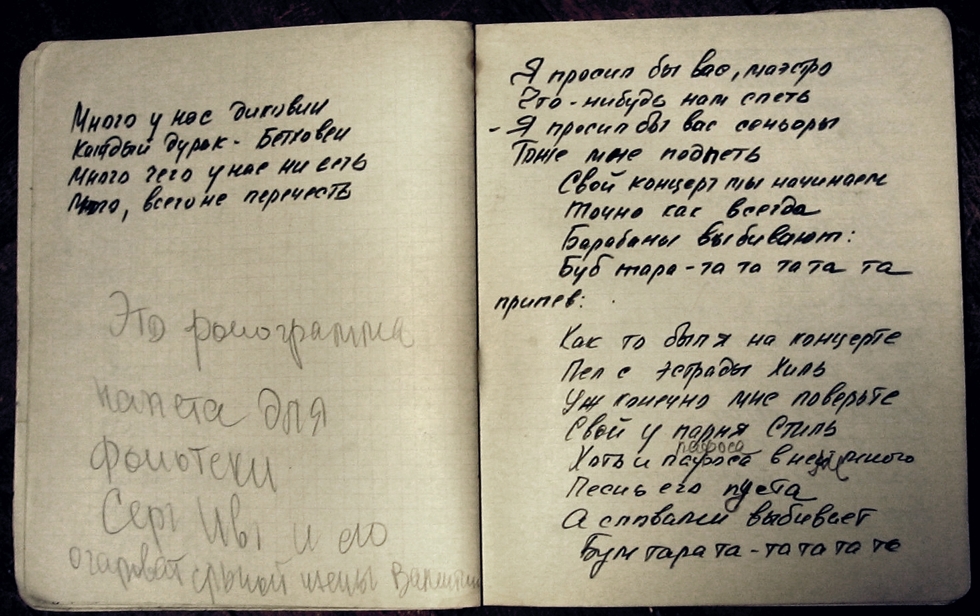 Много у нас диковин
Каждый дурак - Бетховен
Много чего у нас ни есть
Много, всего не перечесть
Это фонограмма
напета для
фонотеки
Серг Ивы и его
очаровательной жены Валентин
Я просил бы вас, маэстро
Что-нибудь нам спеть
- Я просил бы вас сеньоры
Тоже мне подпеть
Свой концерт мы начинаем
Точно как всегда
Барабаны выбивают:
Буб тара-та та та та та
припев:
Как то был я на концерте
Пел с эстрады Хиль
Уж конечно мне поверьте
Свой у парня Стиль
пафоса
Хоть и пафоса в нем много
Песнь его пуста
А словами выбивает
Бум тара та-та та та та